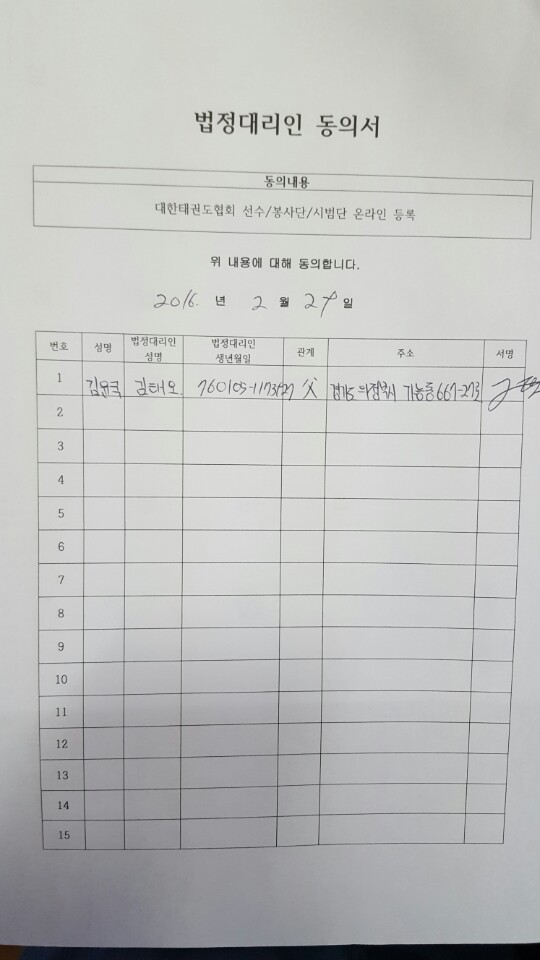 법정대리인 동의서
동의내용
대한태권도협회 선수/봉사단/시범단 온라인 등록
위 내용에 대해 동의합니다.
2016. 년 2 월 일
번호 성명 법정대리인 성명 법정대리인 생년월일 관계 주소 서명
1 김태오 父 경기도 의정부시 가능동
2
3
4
5
6
7
8
9
10
11
12
13
14
15